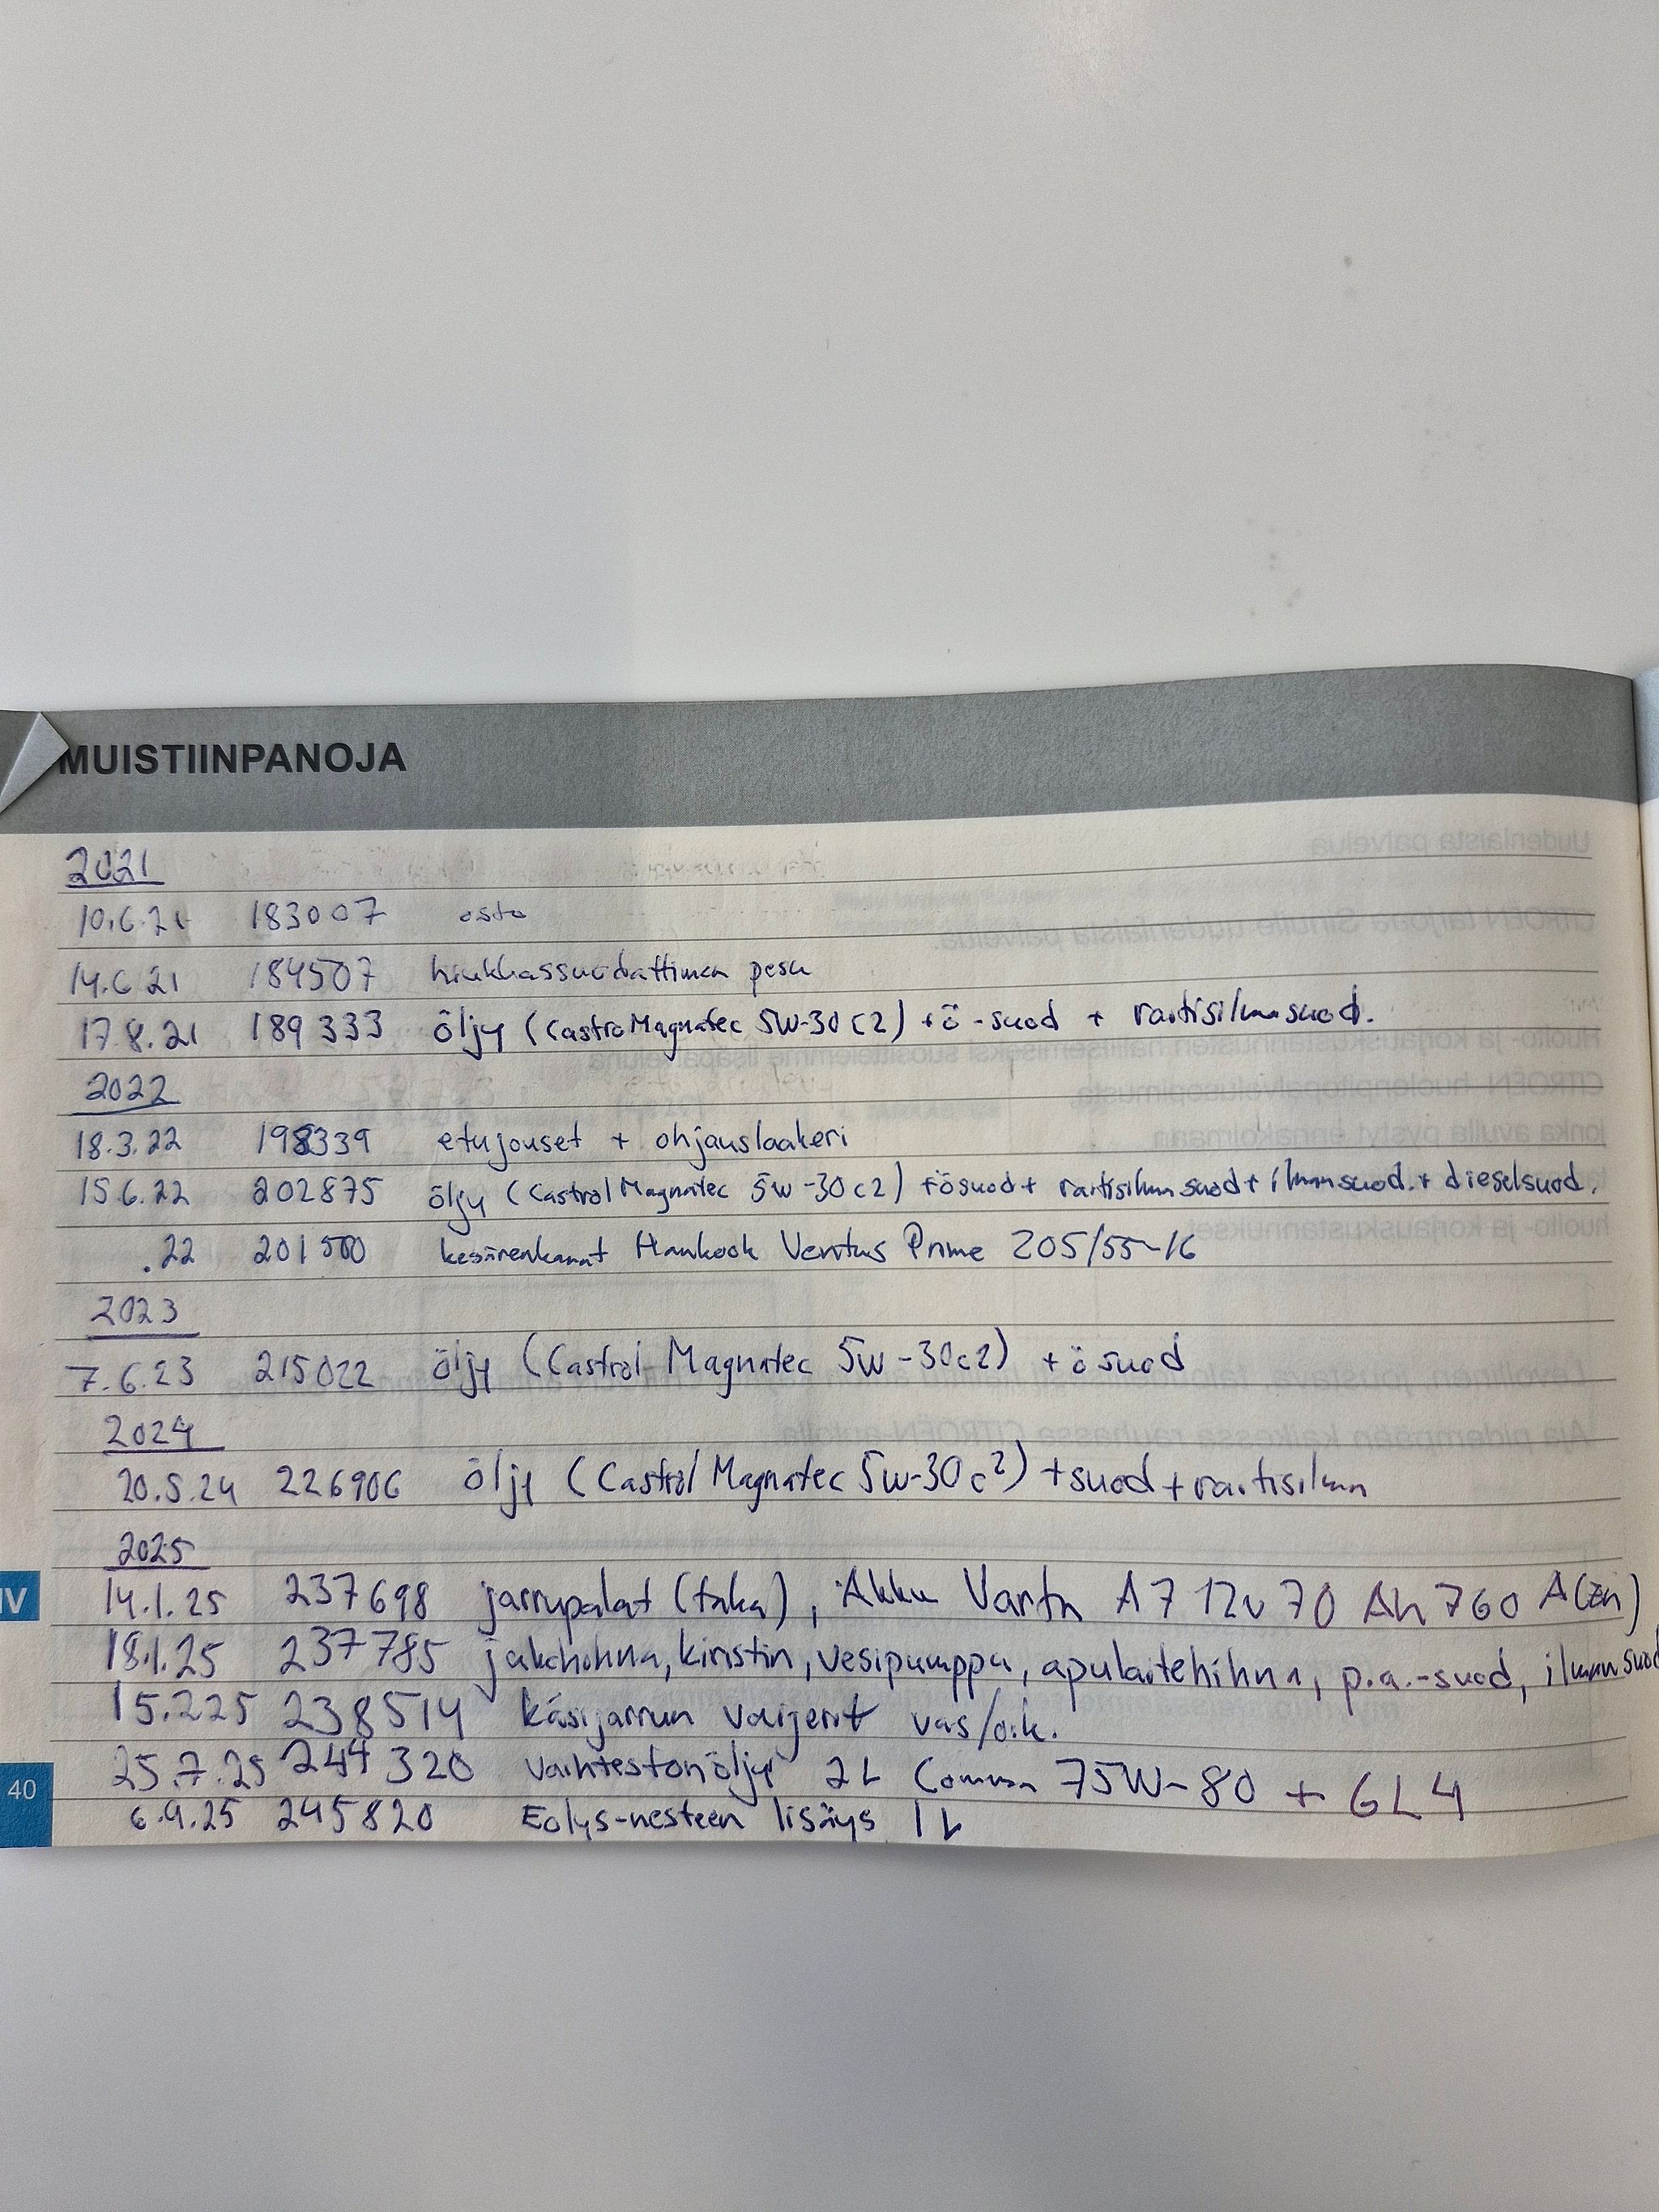 MUISTIINPANOJA
2021
10.6.21 183007 osto
14.6 21 184507 hiukkassuodattimen pesu
17.8.21 189 333 öljy (Castrol Magnatec 5W-30 C2) + ö-suod + raitisilmasuod.
2022
18.3.22 198339 etujouset + ohjauslaakeri
15.6.22 202875 öljy (Castrol Magnatec 5w-30 c2) + ösuod + raitisilmasuod + ilmansuod. + dieselsuod.
.22 201500 kesärenkaat Hankook Ventus Prime 205/55-16
2023
7.6.23 215022 öljy (Castrol Magnatec 5w-30 c2) + ösuod
2024
20.5.24 226906 öljy (Castrol Magnatec 5w-30 c2) + suod + raitisilma
2025
IV
14.1.25 237698 jarrupalat (taka), Akku Varta A7 12v 70 Ah 760 A(en)
18.1.25 237785 jakohihna, kiristin, vesipumppu, apulaitehihna, p.a.-suod, ilmansuod
15.2.25 238514 Käsijarrun vaijerit vas/oik.
25.7.25 244 320 Vaihteistonöljy 2L Comma 75W-80 + GL4
40
6.9.25 245820 Eolys-nesteen lisäys 1L